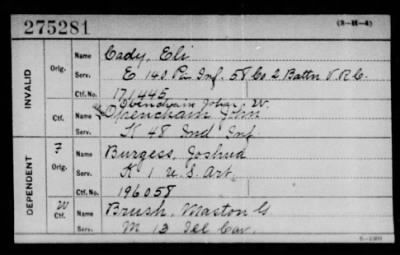 275281
(3-H-4)
INVALID
Orig.
Name Cady, Eli
Serv. E 140 Pa Inf. 58 Co 2 Battn V.R.C.
Ctf. No. 171445
Obenchain John W.
Ctf.
Name John
Serv. K 48 Ind Inf
DEPENDENT
F
Orig.
Name Burgess, Joshua
Serv. K 1 U.S. Art.
Ctf. No. 196058
W
Ctf.
Name Brush, Maston G
Serv. M 13 Ill Cav.